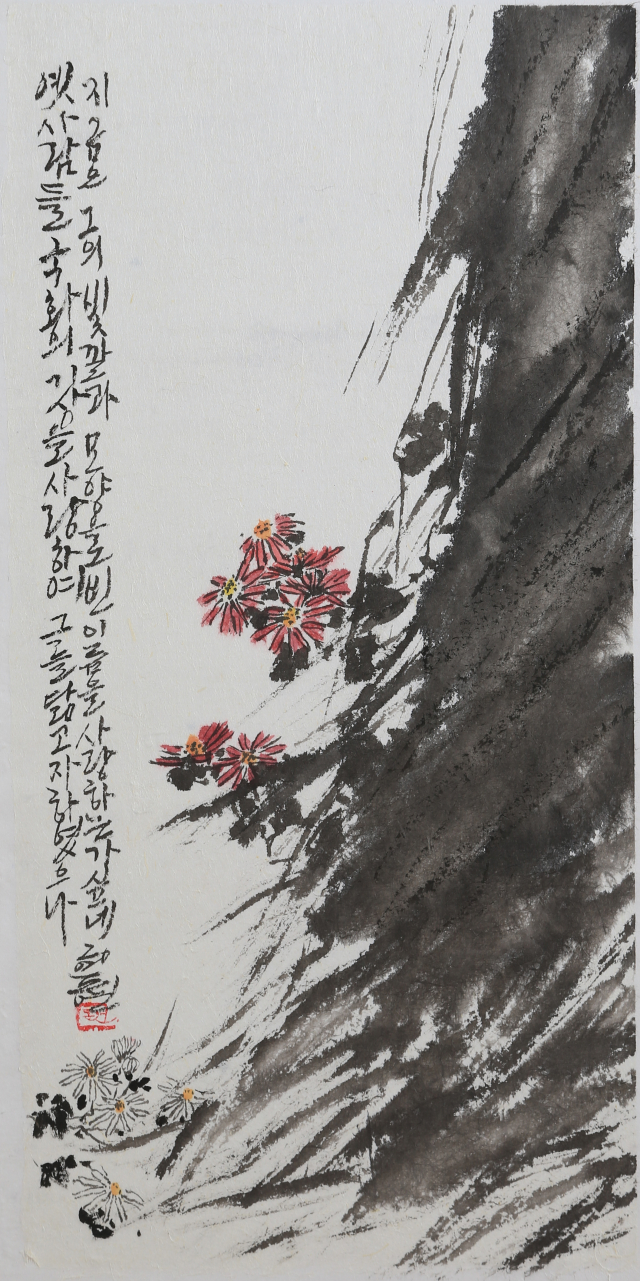 옛사람들 국화의 기상을 사랑하여 그를 닮고자 하였으나
지금은 그의 빛깔과 모양으로 빈 이름을 사랑하는가 싶네